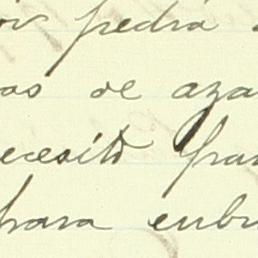 pedia
os de aza
ecesito fran
para enbu